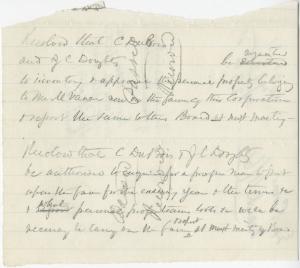 Resolved that C DuBois
and J C Doughty be requested
to inventory & appraise the personal property belonging
to the M Vassar now on the farm of this Corporation
& report the same to this Board at next meeting
Resolved that C DuBois & J C Doughty
be authorized to enquire for a proper man to put
upon the farm for the ensuing year & the terms
& what personal property team tools & will be
necessary to carry on the farm & report at next meeting of Board